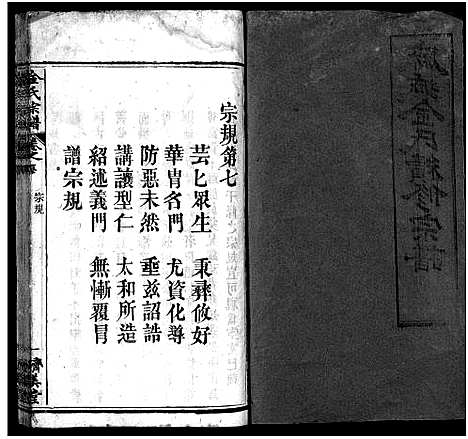 金氏續修宗譜
宗規第七
芸七眾生　秉彝攸好
華胄名門　尤資化導
防惡未然　垂玆詔誥
講議型仁　太和所造
紹述義門　無慚覆冒
譜宗規
金氏宗譜
卷之
宗規
一